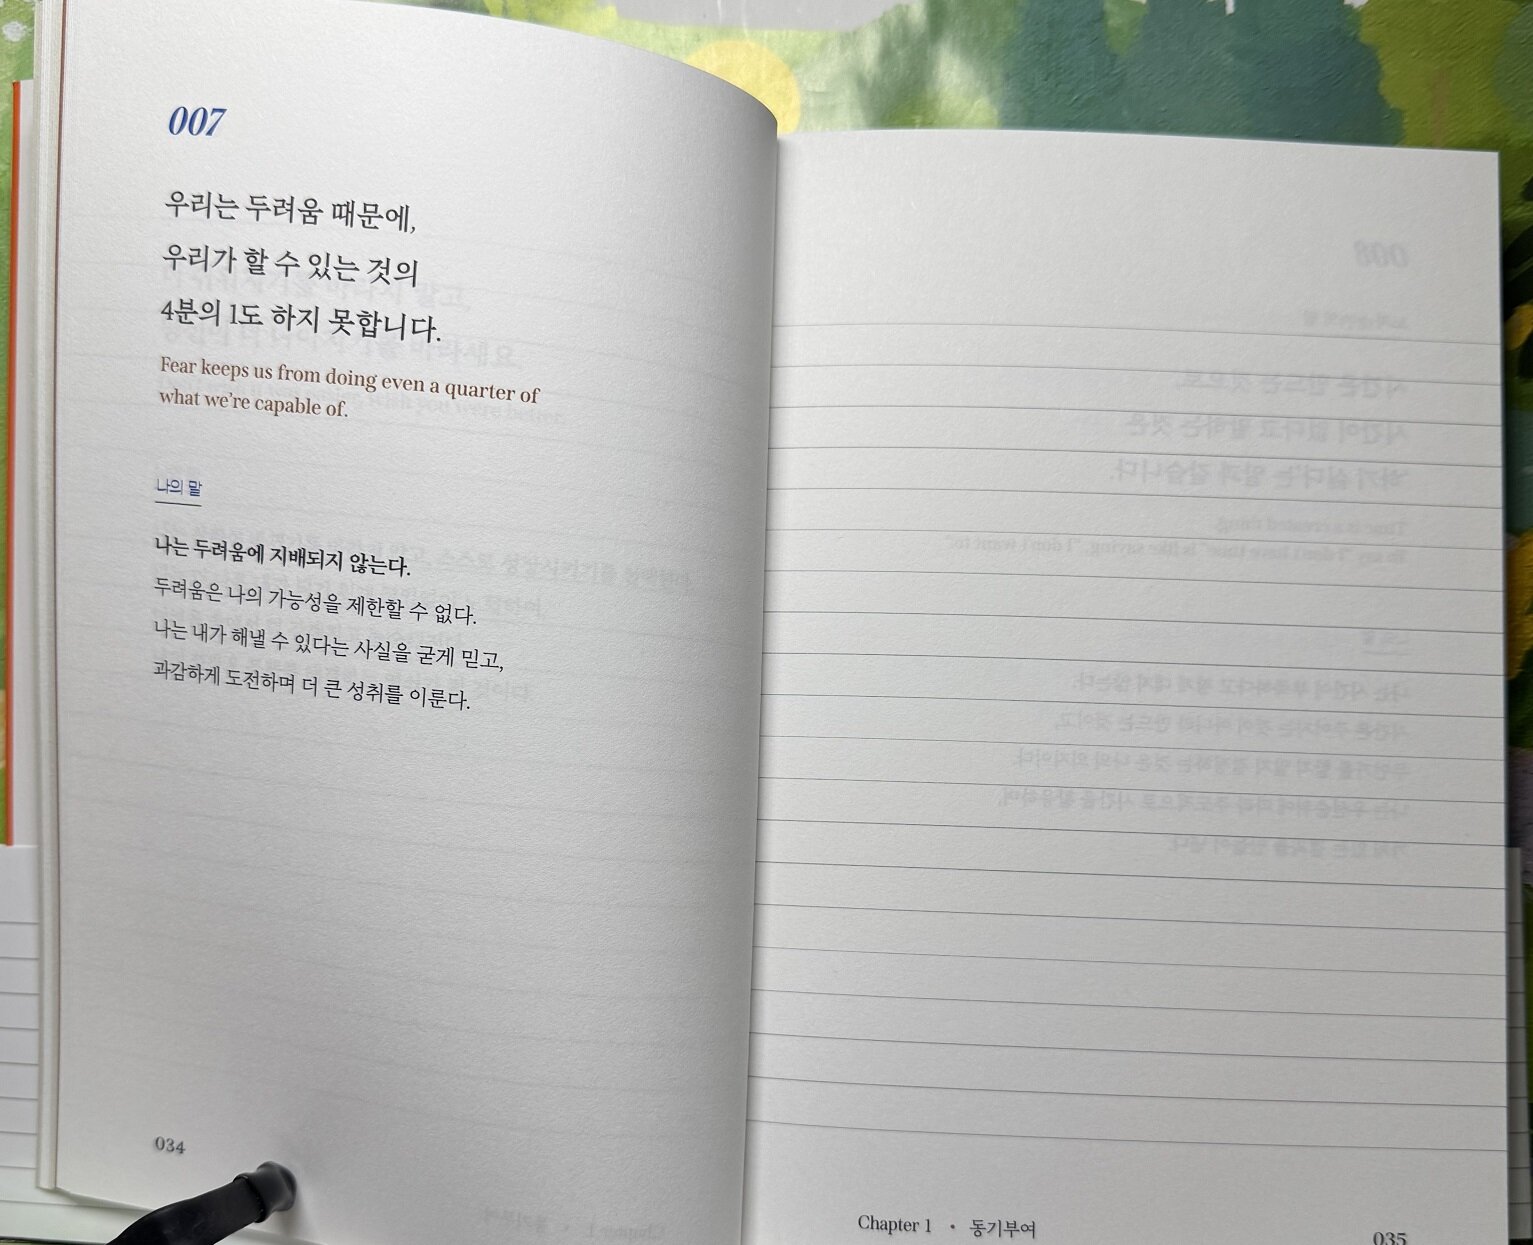 007
우리는 두려움 때문에,
우리가 할 수 있는 것의
4분의 1도 하지 못합니다.
Fear keeps us from doing even a quarter of
what we're capable of.
나의 말
나는 두려움에 지배되지 않는다.
두려움은 나의 가능성을 제한할 수 없다.
나는 내가 해낼 수 있다는 사실을 굳게 믿고,
과감하게 도전하며 더 큰 성취를 이룬다.
034
Chapter 1 • 동기부여
035